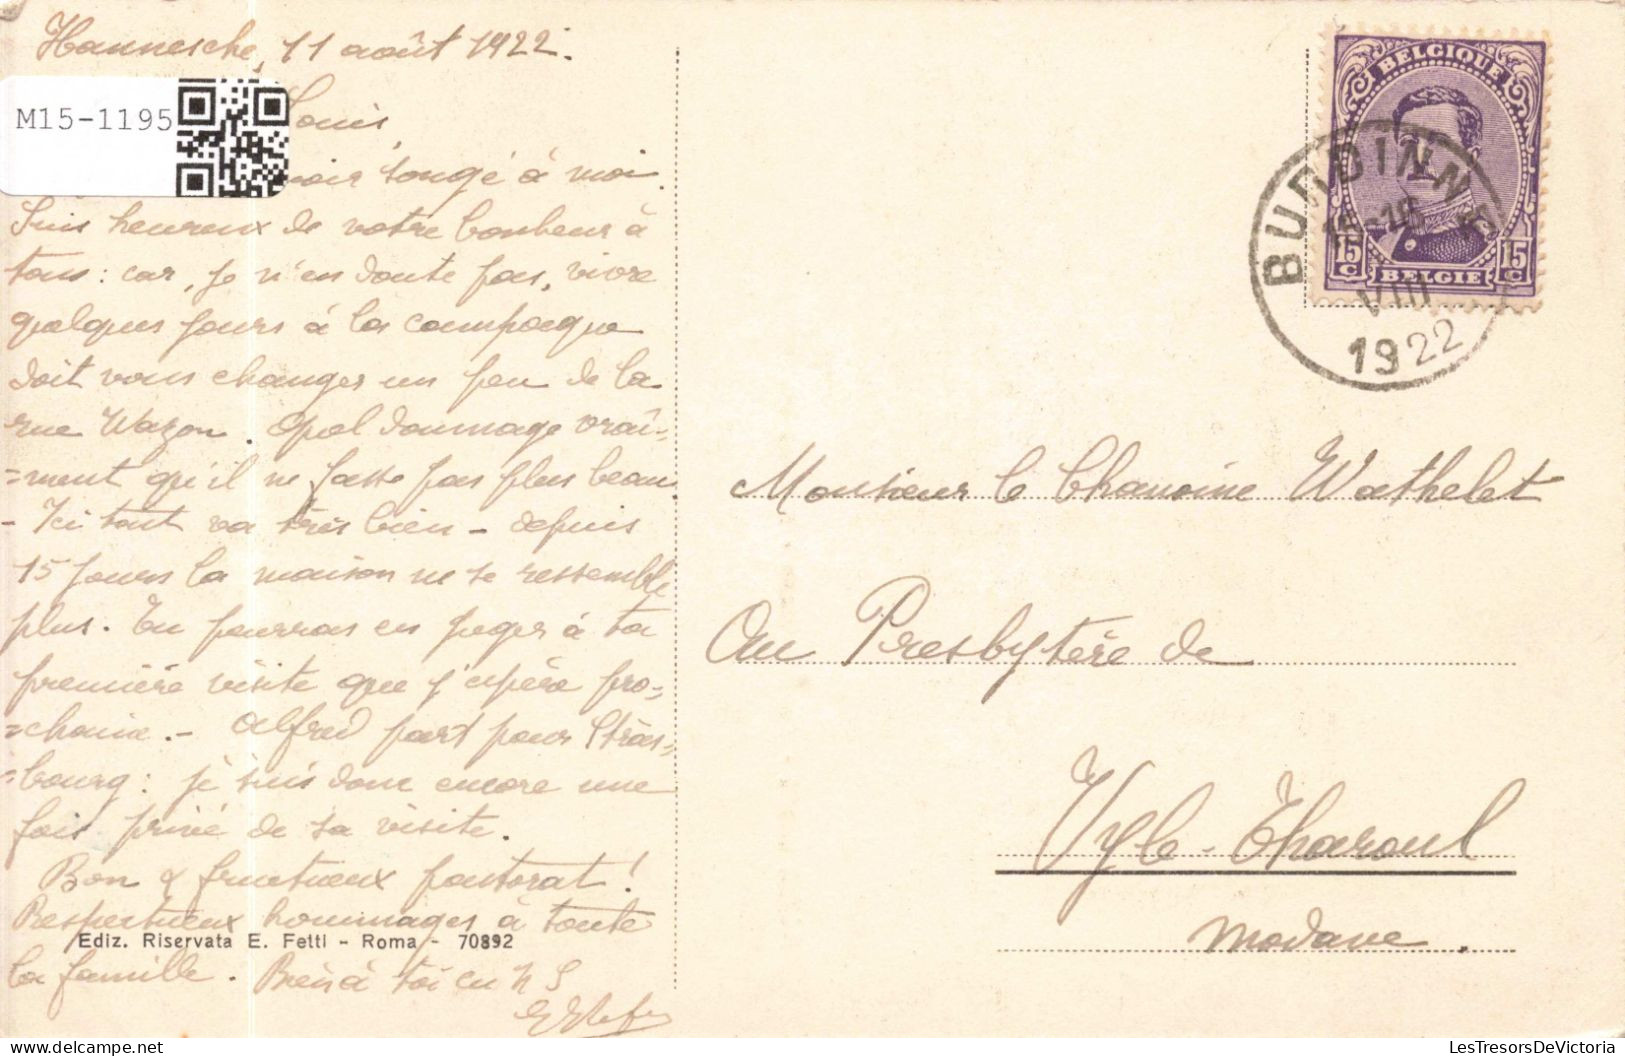 Hannesche, 11 août 1922.
M15-1195
Louis
songé à moi.
Suis heureux de votre bonheur à
tous : car, je n'en doute pas, vivre
quelques jours à la campagne
doit vous changer un peu de la
rue Wazon. Quel dommage vrai-
-ment qu'il ne fasse pas plus beau.
- Ici tout va très bien - depuis
15 jours la maison ne se ressemble
plus. Tu pourras en juger à ta
première visite que j'espère pro-
-chaine. - Alfred part pour Stras-
-bourg : je suis donc encore une
fois privé de sa visite.
Bon & fructueux pastorat !
Respectueux hommages à toute
la famille. Bien à toi en N S
Ediz. Riservata E. Fetti - Roma - 70892
BELGIQUE
15 C
15 C
BELGIE
BURDINNE
15-16
VIII
1922
Monsieur le Chanoine Wathelet
Au Presbytère de
Vyle-Tharoul
Modave.
LesTresorsDeVictoria